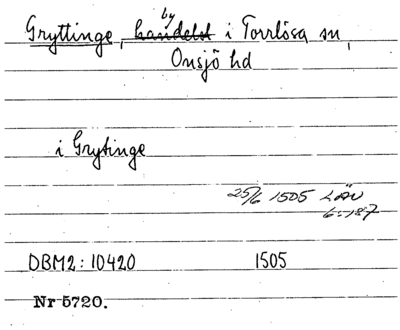 Gryttinge, by i Torrlösa sn,
Onsjö hd
i Grytinge
25/6 1505 LÄU
6:187
DBM2: 10420 1505
Nr 5720.